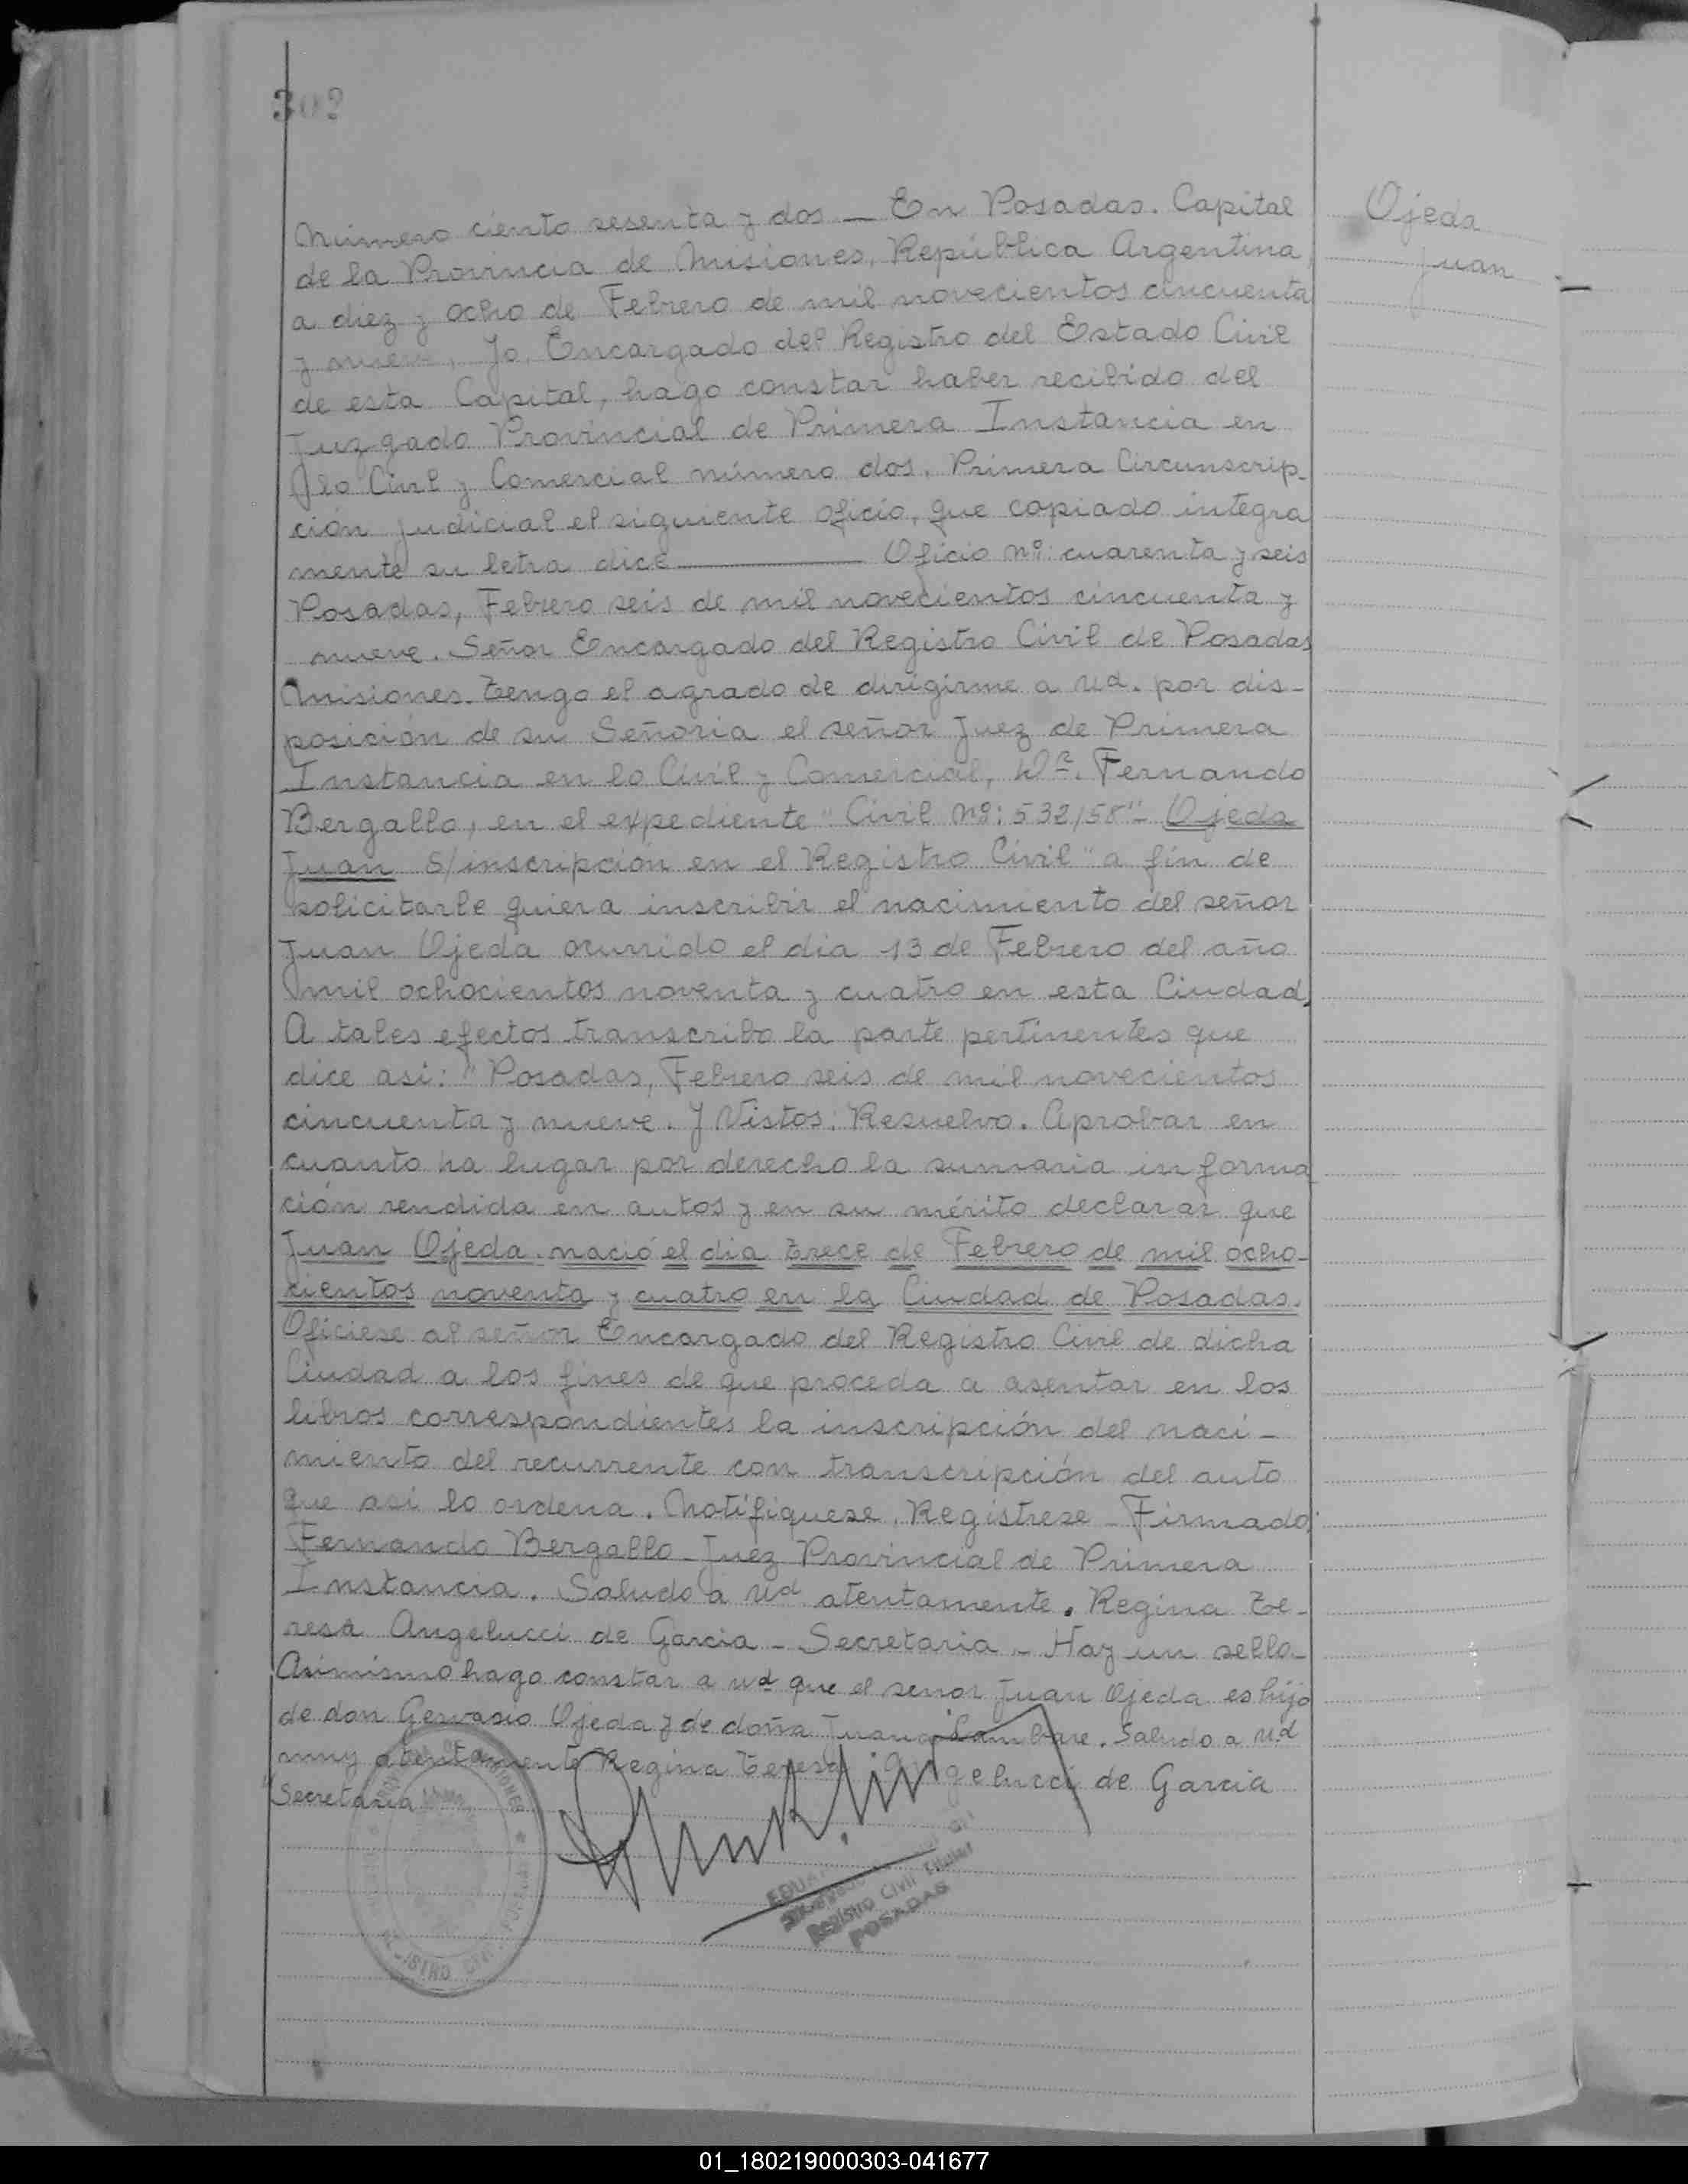 302
Número ciento sesenta y dos — En Posadas. Capital
de la Provincia de Misiones, República Argentina,
a diez y ocho de Febrero de mil novecientos cincuenta
y nueve, Yo, Encargado del Registro del Estado Civil
de esta Capital, hago constar haber recibido del
Juzgado Provincial de Primera Instancia en
lo Civil y Comercial número dos, Primera Circunscrip-
ción judicial el siguiente oficio, que copiado integra
mente su letra dice ——— Oficio nº: cuarenta y seis
Posadas, Febrero seis de mil novecientos cincuenta y
nueve. Señor Encargado del Registro Civil de Posadas
Misiones. Tengo el agrado de dirigirme a Ud. por dis-
posición de su Señoria el señor Juez de Primera
Instancia en lo Civil y Comercial, Dr. Fernando
Bergallo, en el expediente "Civil Nº: 532/58"- Ojeda
Juan S/inscripción en el Registro Civil" a fin de
solicitarle quiera inscribir el nacimiento del señor
Juan Ojeda ocurrido el dia 13 de Febrero del año
mil ochocientos noventa y cuatro en esta Ciudad.
A tales efectos transcribo la parte pertinentes que
dice asi: "Posadas, Febrero seis de mil novecientos
cincuenta y nueve. Y Vistos: Resuelvo. Aprobar en
cuanto ha lugar por derecho la sumaria informa
ción rendida en autos y en su mérito declarar que
Juan Ojeda nació el dia trece de Febrero de mil ocho-
cientos noventa y cuatro en la Ciudad de Posadas.
Oficiese al señor Encargado del Registro Civil de dicha
Ciudad a los fines de que proceda a asentar en los
libros correspondientes la inscripción del naci-
miento del recurrente con transcripción del auto
que asi lo ordena. Notifiquese, Registrese - Firmado:
Fernando Bergallo - Juez Provincial de Primera
Instancia. Saludo a Ud atentamente. Regina Te-
resa Angelucci de Garcia - Secretaria - Hay un sello-
Asimismo hago constar a ud que el senor Juan Ojeda es hijo
de don Gervasio Ojeda y de doña Juana Lambare. Saludo a Ud
muy atentamente Regina Teresa Angelucci de Garcia
Secretaria
Registro Civil Titular
POSADAS
Ojeda
Juan
01_180219000303-041677